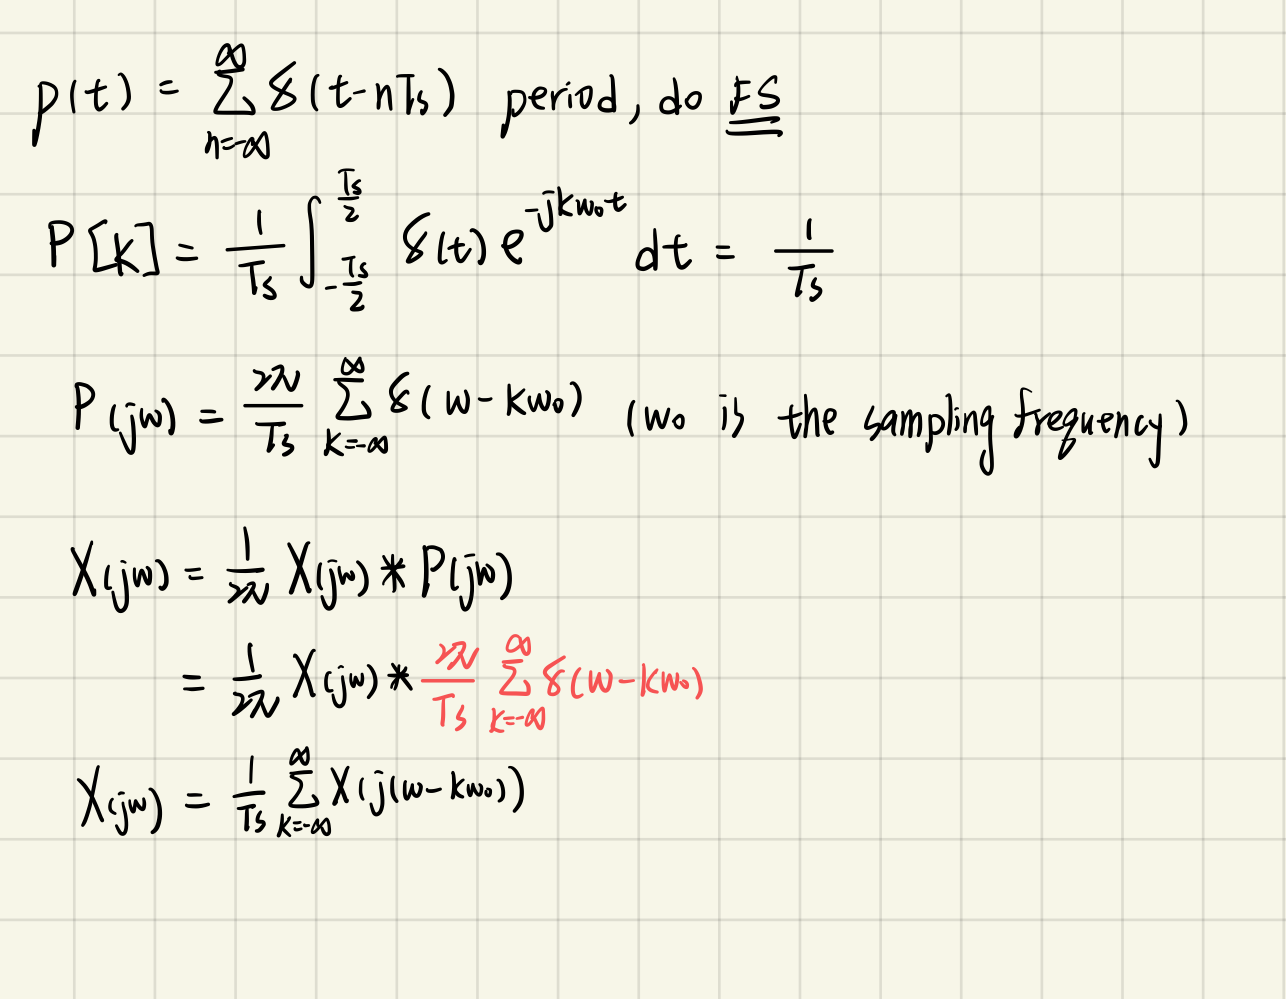 p(t) = ∑_{n=-∞}^{∞} δ(t-nTs) period, do FS
P[k] = \frac{1}{Ts} ∫_{-\frac{Ts}{2}}^{\frac{Ts}{2}} δ(t) e^{-jkw₀t} dt = \frac{1}{Ts}
P(jw) = \frac{2π}{Ts} ∑_{k=-∞}^{∞} δ(w-kw₀) (w₀ is the sampling frequency)
X(jw) = \frac{1}{2π} X(jw) * P(jw)
= \frac{1}{2π} X(jw) * \frac{2π}{Ts} ∑_{k=-∞}^{∞} δ(w-kw₀)
X(jw) = \frac{1}{Ts} ∑_{k=-∞}^{∞} X(j(w-kw₀))